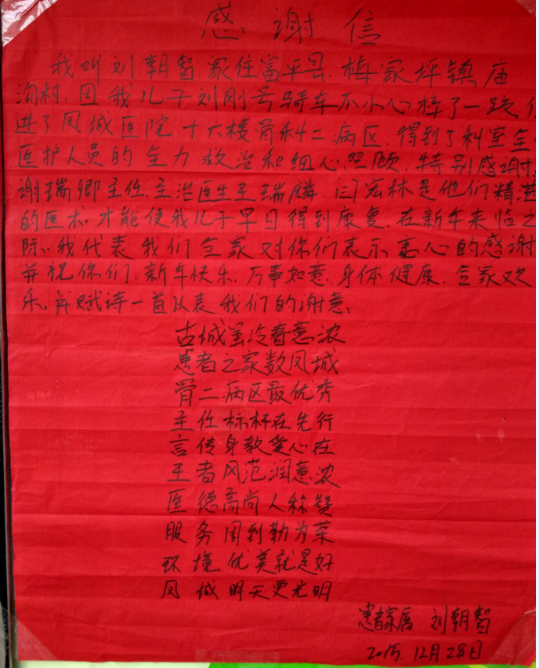 感谢信
我叫刘朝智家住富平县.梅家坪镇庙
沟村,因我儿子刘刚号骑车不小心摔了一跤住
进了凤城医院十六楼骨科二病区,得到了科室全
医护人员的全力救治和细心照顾,特别感谢
谢瑞卿主任.主治医生王瑞麟 闫宏林是他们精湛
的医术.才能使我儿子早日得到康复.在新年来临之
际.我代表我们全家对你们表示衷心的感谢
并祝你们:新年快乐.万事如意.身体健康.全家欢
乐.并赋诗一首以表我们的谢意:
古城虽冷春意浓
患者之家数凤城
骨二病区最优秀
主任标杆在先行
言传身教爱心在
王者风范润意浓
医德高尚人称赞
服务周到勤为荣
环境优美就是好
凤城明天更光明
患者家属 刘朝智
2015.12月28日